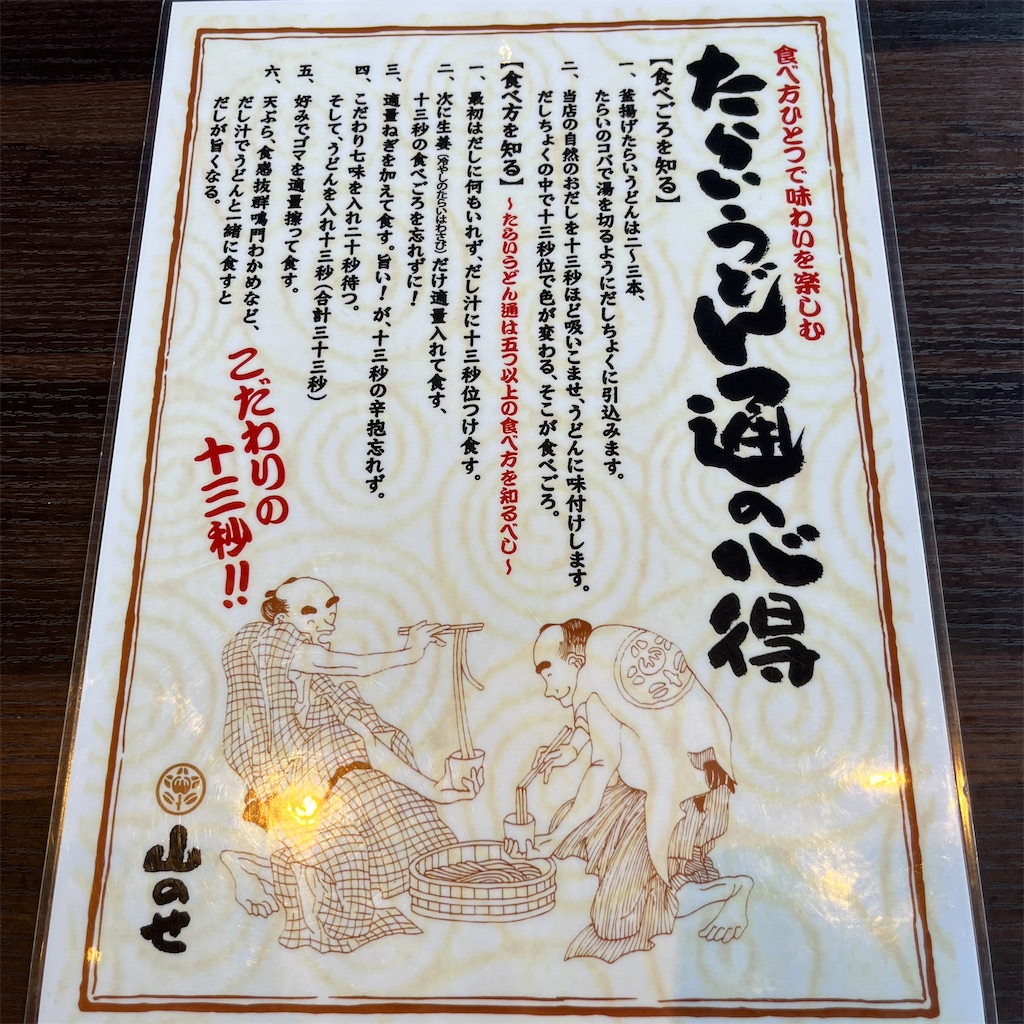 食べ方ひとつで味わいを楽しむ
たらいうどん通の心得
【食べごろを知る】
一、釜揚げたらいうどんは二〜三本、
たらいのコバで湯を切るようにだしちょくに引込みます。
二、当店の自然のおだしを十三秒ほど吸いこませ、うどんに味付けします。
だしちょくの中で十三秒位で色が変わる、そこが食べごろ。
【食べ方を知る】〜たらいうどん通は五つ以上の食べ方を知るべし〜
一、最初はだしに何もいれず、だし汁に十三秒位つけ食す。
二、次に生姜(冷やしのたらいはわさび)だけ適量入れて食す、
十三秒の食べごろを忘れずに!
三、適量ねぎを加えて食す。旨い!が、十三秒の辛抱忘れず。
四、こだわり七味を入れ二十秒待つ。
そして、うどんを入れ十三秒(合計三十三秒)
五、好みでゴマを適量擦って食す。
六、天ぷら、食感抜群鳴門わかめなど、
だし汁でうどんと一緒に食すと
だしが旨くなる。
こだわりの
十三秒!!
山のせ